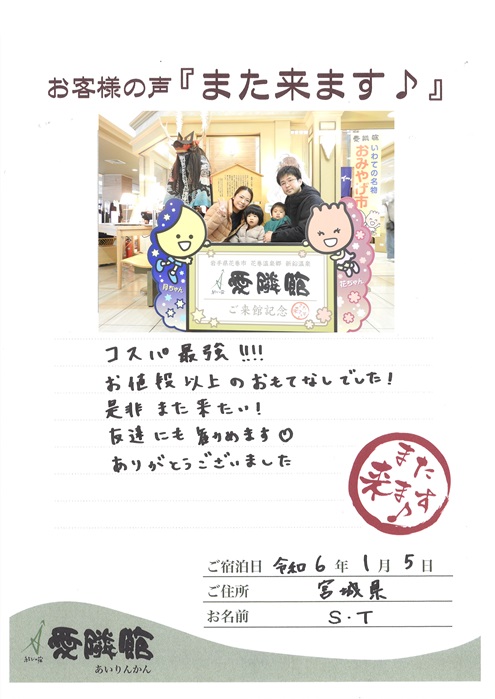 お客様の声『また来ます♪』
愛隣館
いわての名物
おみやげ市
月ちゃん
花ちゃん
岩手県花巻市 花巻温泉郷 新鉛温泉
愛隣館
ご来館記念
コスパ最強!!!!
お値段以上のおもてなしでした!
是非また来たい!
友達にも勧めます♡
ありがとうございました
また
来ます♪
ご宿泊日 令和6年1月5日
ご住所 宮城県
お名前 S・T
愛隣館
あいりんかん